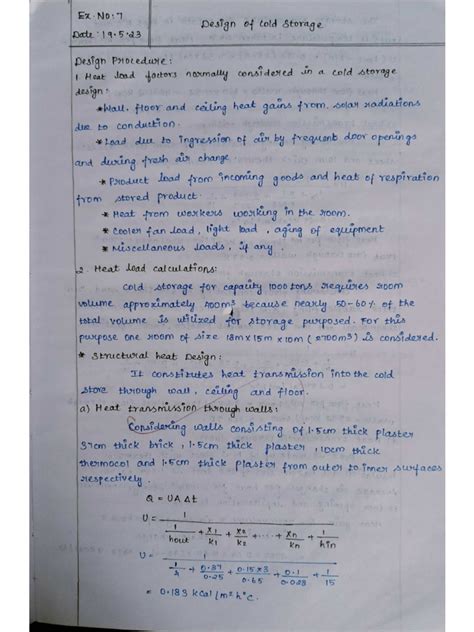 Ex. No: 7
Date: 19.5.23
Design of Cold Storage
Design Procedure:
1. Heat load factors normally considered in a cold storage
design:
* Wall, floor and ceiling heat gains from solar radiations
due to conduction.
* Load due to ingression of air by frequent door openings
and during fresh air change.
* Product load from incoming goods and heat of respiration
from stored product.
* Heat from workers working in the room.
* Cooler fan load, light load, aging of equipment
* Miscellaneous loads, if any.
2. Heat load calculations:
Cold storage for capacity 1000 tons requires room
volume approximately m³ because nearly 50-60% of the
total volume is utilized for storage purposed. For this
purpose one room of size 18m x 15m x 10m (2700m³) is considered.
* Structural heat Design:
It constitutes heat transmission into the cold
store through wall, ceiling and floor.
a) Heat transmission through walls:
Considering walls consisting of 1.5cm thick plaster
37cm thick brick, 1.5cm thick plaster, 10cm thick
thermocol and 1.5cm thick plaster from outer to inner surfaces
respectively.
Q = UA Δt
U = 1 / (1/hout + x1/k1 + x2/k2 + ... + xn/kn + 1/hin)
U = 1 / (1/4 + 0.37/0.25 + 0.15x3/0.65 + 0.1/0.028 + 1/15)
= 0.183 kCal/m²h°c.